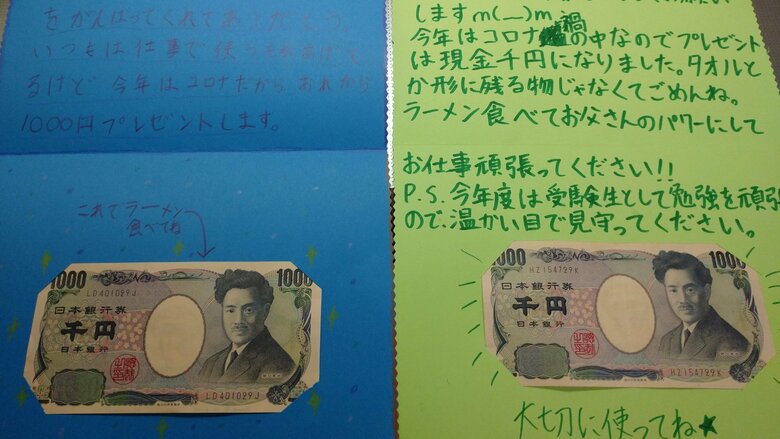 をがんばってくれてありがとう。
いつもは仕事で使うものをあげて
るけど今年はコロナだから、おれから
1000円プレゼントします。
これでラーメン
食べてね
1000
1000
LD401029J
日本銀行券
千円
日本銀行
LD401029J
しますm(__)m
今年はコロナ禍の中なのでプレゼント
は現金千円になりました。タオルと
か形に残る物じゃなくてごめんね。
ラーメン食べてお父さんのパワーにして
お仕事頑張ってください!!
P.S.今年度は受験生として勉強を頑張
ので、温かい目で見守ってください。
1000
1000
HZ154729K
日本銀行券
千円
日本銀行
HZ154729K
大切に使ってね★